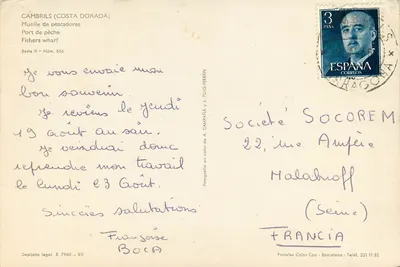 CAMBRILS (COSTA DORADA)
Muelle de pescadores
Port de pêche
Fishers wharf
Serie II - Núm. 856
Je vous envoie mon
bon souvenir.
Je reviens le jeudi
19 août au soir.
Je viendrai donc
reprendre mon travail
le lundi 23 Août.
Sincères salutations
Françoise
BOCA
Depósito legal B. 7960 - XII
Fotografía en color de A. CAMPAÑÁ y J. PUIG-FERRÁN
3
PTAS
ESPAÑA
CORREOS
TARRAGONA
Société SOCOREM
22, rue Ampère
Malakoff
(Seine)
FRANCIA